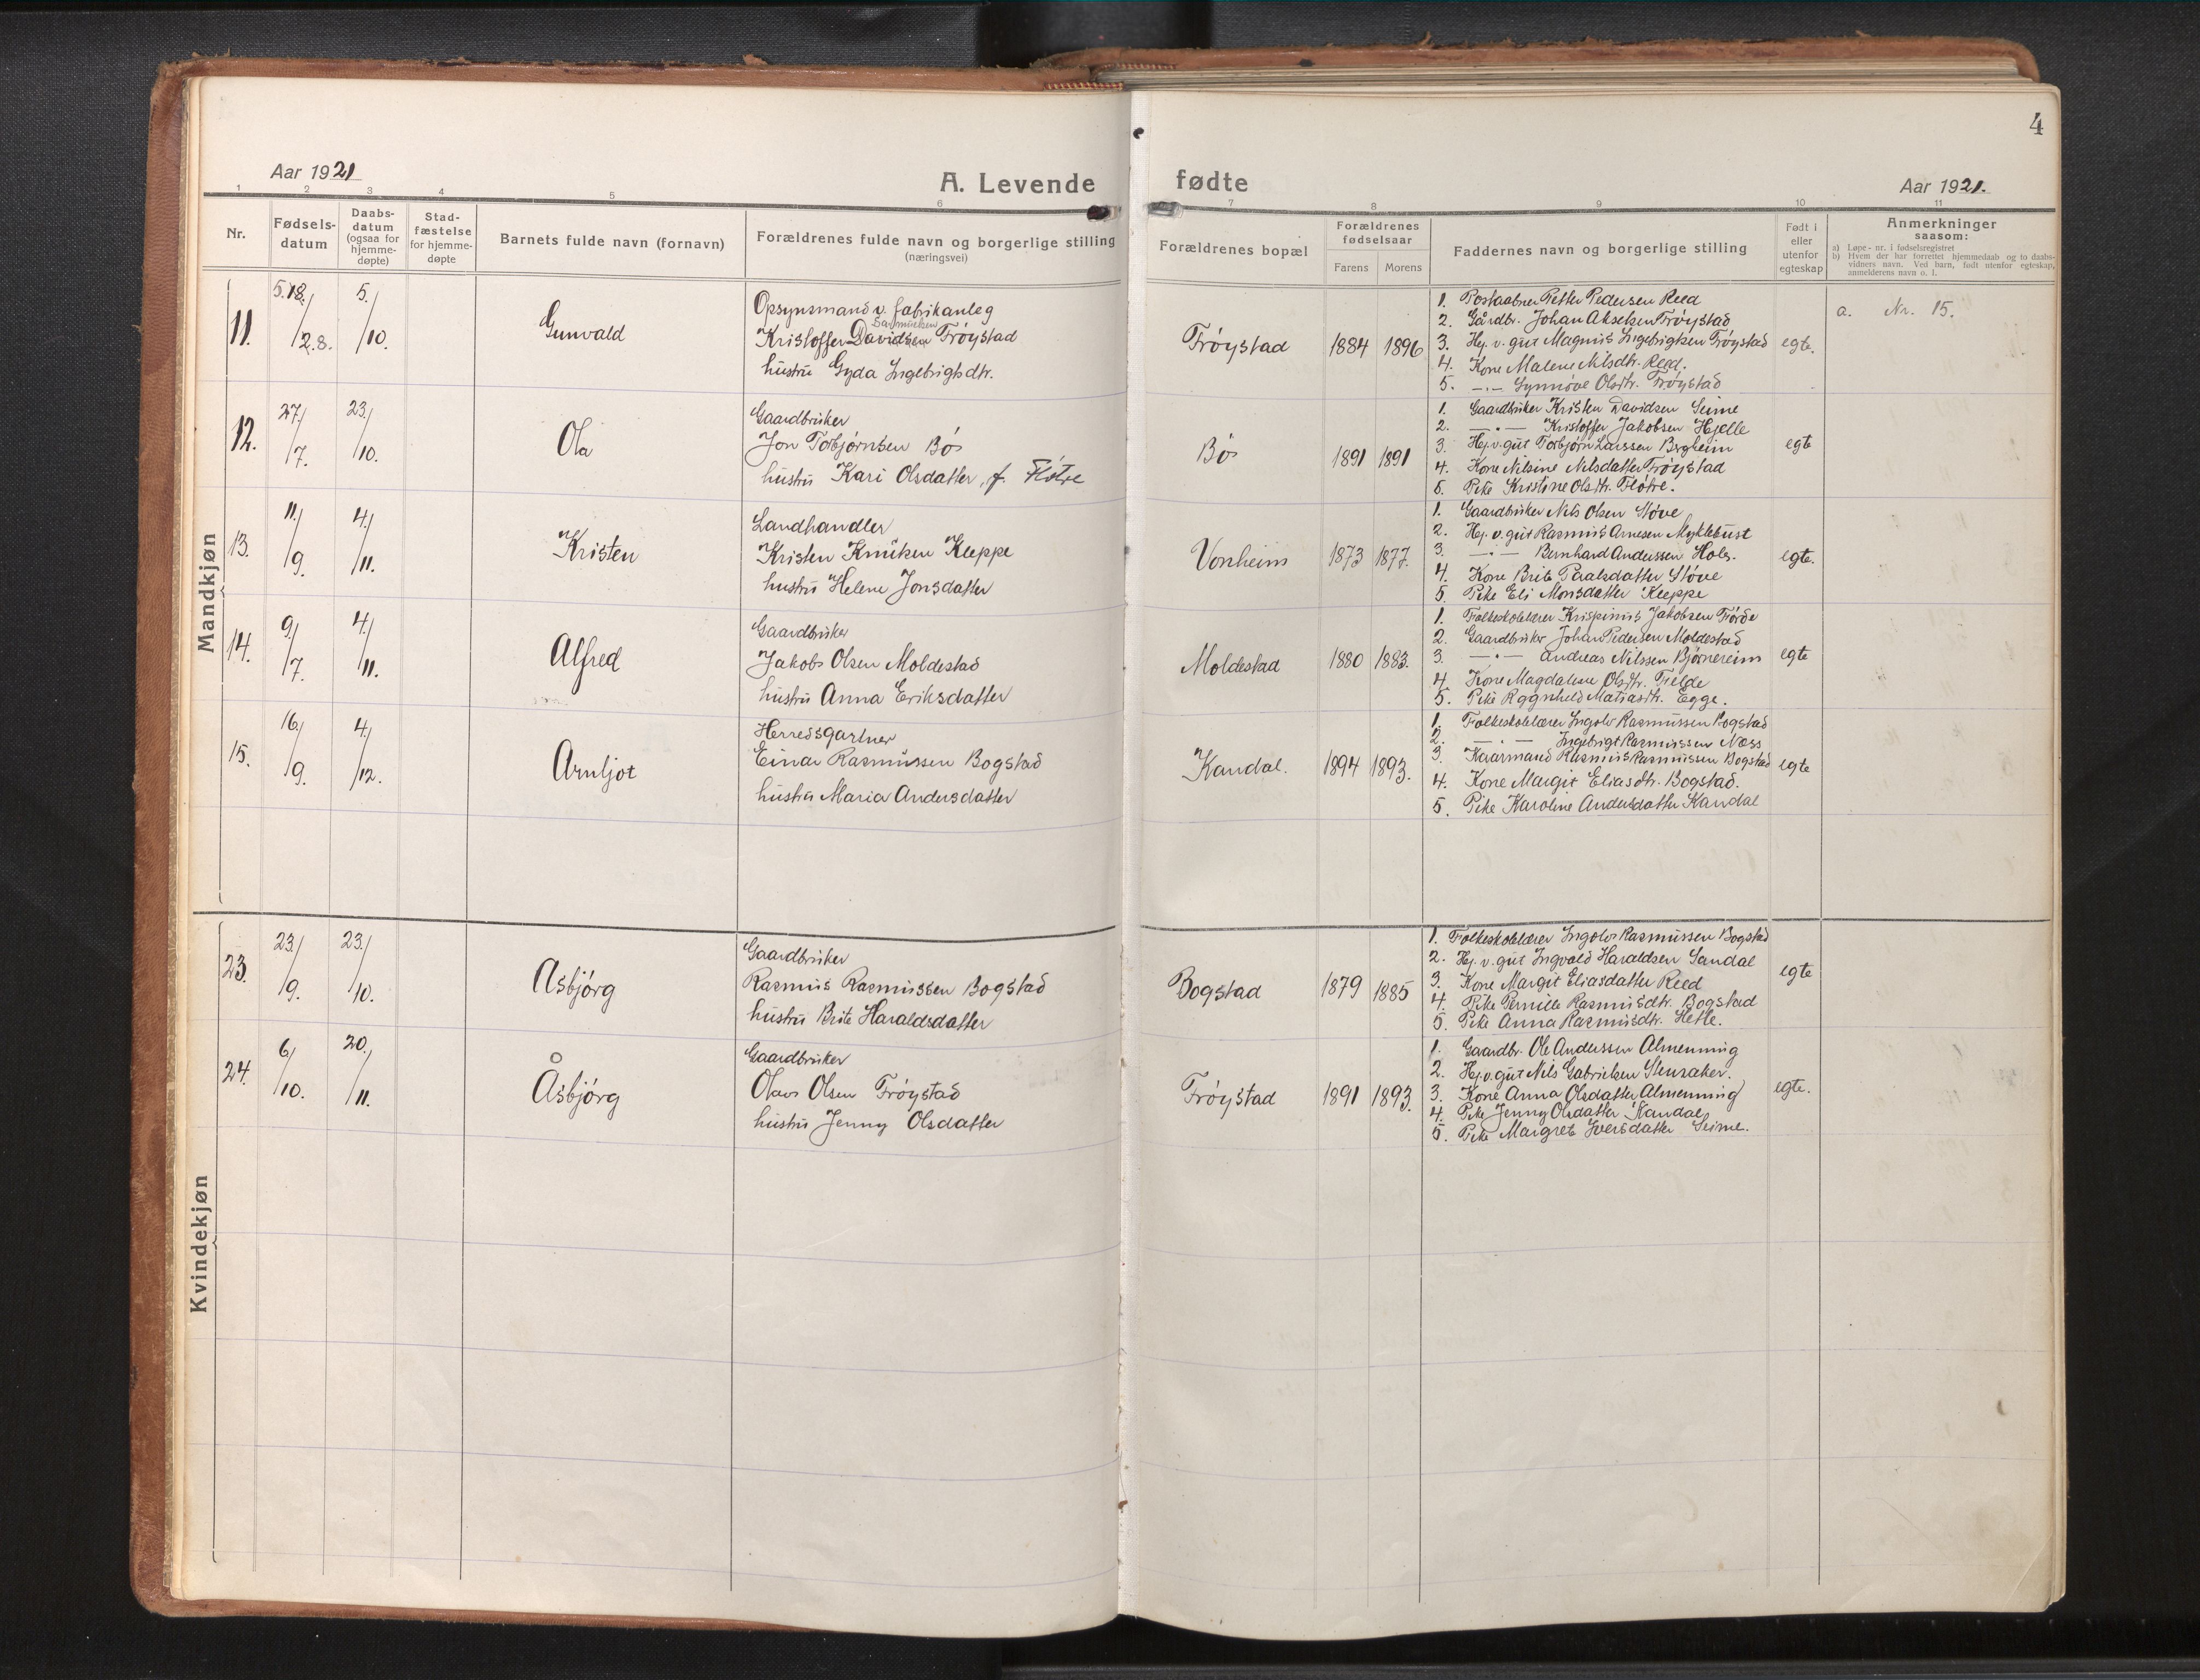 4
Aar 1921
A. Levende fødte
Aar 1921.
1 2 3 4 5 6 7 8 9 10 11
Nr.
Fødsels-
datum
Daabs-
datum
(ogsaa for
hjemme-
døpte)
Stad-
fæstelse
for hjemme-
døpte
Barnets fulde navn (fornavn)
Forældrenes fulde navn og borgerlige stilling
(næringsvei)
Forældrenes bopæl
Forældrenes
fødselsaar
Farens Morens
Faddernes navn og borgerlige stilling
Født i
eller
utenfor
egteskap
Anmerkninger
saasom:
a) Løpe-nr. i fødselsregistret
b) Hvem der har forrettet hjemmedaab og to daabs-
vidners navn. Ved barn, født utenfor egteskap,
anmelderens navn o. l.
Mandkjøn
11.
2.8.
5./10.
Gunvald
Opsynsmand v. fabrikanleg
Kristoffer Davidsen Frøystad
hustru Gyda Ingebrigtsdtr.
Frøystad
1884 1896
1. Postaabner Petter Pedersen Reed
2. Gårdbr. Johan Akselsen Frøystad
3. Hj. v. gut Magnus Ingebrigtsen Frøystad
4. Kone Malene Nilsdtr. Reed.
5. —·— Synnøve Olsdtr. Frøystad
egte.
a. Nr. 15.
12.
27./7.
23./10.
Ola
Gaardbruker
Jon Torbjørnsen Bø
hustru Kari Olsdatter, f. Fløtre
Bø
1891 1891
1. Gaardbruker Kristen Davidsen Seime
2. —·— Kristoffer Jakobsen Hjelle
3. Hj. v. gut Torbjørn Larssen Bergheim
4. Kone Nilsine Nilsdatter Frøystad
5. Pike Kristine Olsdtr. Fløtre.
egte
13.
11./9.
4./11.
Kristen
Landhandler
Kristen Knutsen Kleppe
hustru Helene Jonsdatter
Vonheim
1873 1877.
1. Gaardbruker Nils Olsen Støve
2. Hj. v. gut Rasmus Arnesen Myklebust
3. —·— Bernhard Anderssen Hole.
4. Kone Brite Paalsdatter Støve
5. Pike Eli Monsdatter Kleppe
egte.
14.
9./7.
4./11.
Alfred
Gaardbruker
Jakob Olsen Moldestad
hustru Anna Eriksdatter
Moldestad
1880 1883.
1. Folkeskolelærer Krispinus Jakobsen Førde
2. Gaardbruker Johan Pedersen Moldestad
3. —·— Andreas Nilssen Bjørnereim
4. Kone Magdalene Olsdtr. Fjelde
5. Pike Ragnhild Matiasdtr. Egge.
egte
15.
16./9.
4./12.
Arnljot
Herredsgartner
Einar Rasmussen Bogstad
hustru Maria Andersdatter
Kandal.
1894 1893.
1. Folkeskolelærer Ingolv Rasmussen Bogstad
2. —·— Ingebrigt Rasmussen Næss
3. Kaarmand Rasmus Rasmussen Bogstad
4. Kone Margit Eliasdtr. Bogstad.
5. Pike Karoline Andersdatter Kandal
egte
Kvindekjøn
23.
23./9.
23./10.
Asbjørg
Gaardbruker
Rasmus Rasmussen Bogstad
hustru Brite Haraldsdatter
Bogstad
1879 1885
1. Folkeskolelærer Ingolv Rasmussen Bogstad
2. Hj. v. gut Ingvald Haraldsen Sandal
3. Kone Margit Eliasdatter Reed
4. Pike Pernille Rasmusdtr. Bogstad
5. Pike Anna Rasmusdtr. Hetle.
egte
24.
6./10.
20./11.
Åsbjørg
Gaardbruker
Olav Olsen Frøystad
hustru Jenny Olsdatter
Frøystad
1891 1893.
1. Gaardbr. Ole Anderssen Almenning
2. Hj. v. gut Nils Gabrielsen Stensaker.
3. Kone Anna Olsdatter Almenning
4. Pike Jenny Olsdatter Kandal
5. Pike Margrete Iversdatter Seime.
egte.